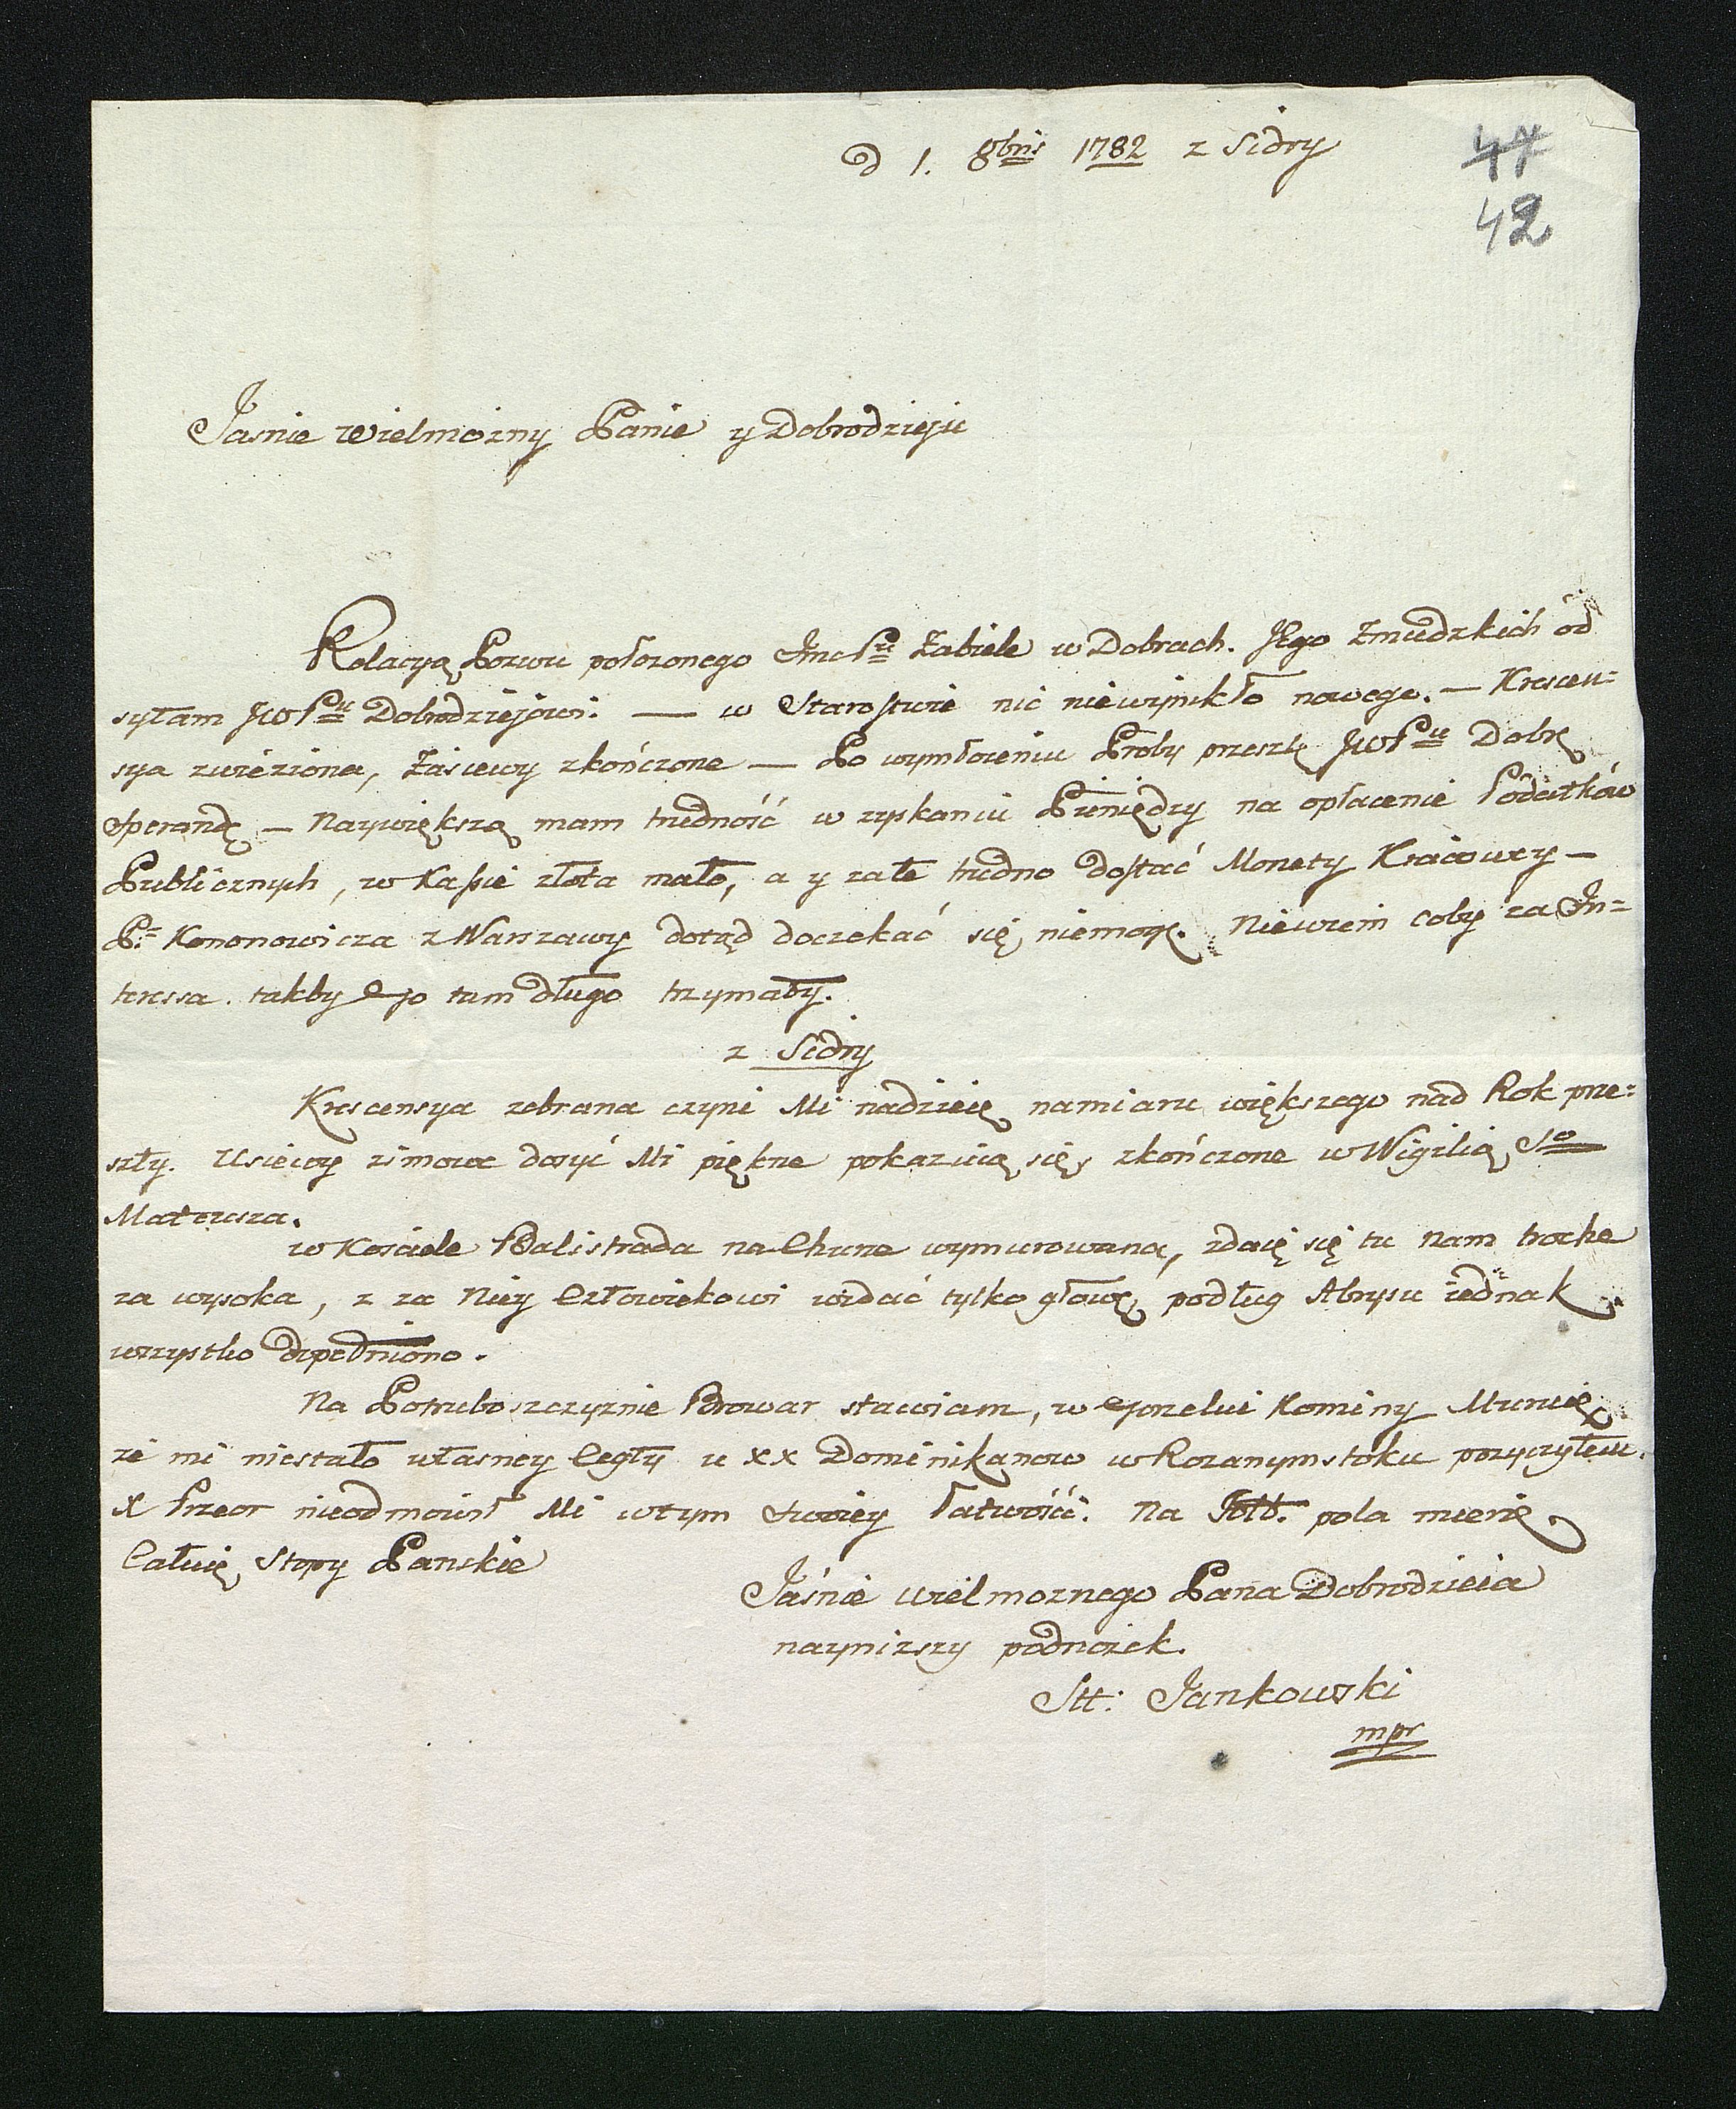 d 1. 8bris 1782 z Sidry
47
42
Jasnie wielmożny Panie y Dobrodzieju
Relacyą Pozwu położonego Jmc Pu Zabiele w Dobrach. JEgo Zmudzkich od
syłam JWPu Dobrodziejowi. — w Starostwie nic niewynikło nowego. — Krescen=
sya zwieziona, Zasiewy zkończone — Po wymłoceniu Proby przeszlę JWPu Dobr
Sperandę — Naywiększą mam trudność w zyskaniu Pieniędzy na opłacenie Podatków
Publicznych, w Kassie złota mało, a y za te trudno dostać Monety Kraiowey —
P: Kononowicza z Warszawy dotąd doczekać się niemogę. Niewiem coby za In=
teressa. takby Ego tam długo trzymały.
z Sidry
Krescensya zebrana czyni Mi nadzieię namiaru większego nad Rok prze=
szły. Usiewy zimowe dosyć Mi piękne pokazuią się, zkończone w Wigilią So
Mateusza.
w Kosciele Balistrada na Churze wymurowana, zdaię się tu nam troche
za wysoka, z za Niey Człowiekowi widać tylko głowę, podług Abrysu iednak
wszystko dopełniono.
Na Potruboszczyznie Browar stawiam, w gorzelni Kominy Muruię
że mi niestało własney Cegły u XX Dominikanow w Rozanymstoku pozyczyłem.
X Przeor nieodmowił Mi wtym swoiey łatwości. Na Folw. pola mierzę
Całuię Stopy Panskie
Jaśnie wielmoznego Pana Dobrodzieia
naynizszy podnożek.
Stt: Jankowski
mpr